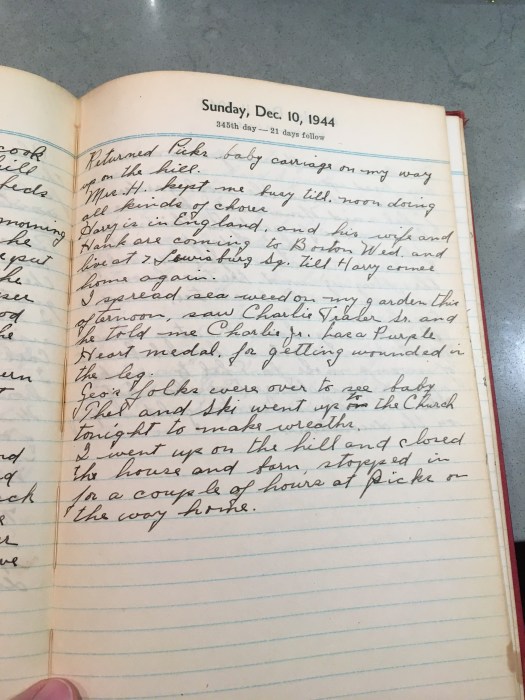 cook
hill
beds
morning
he
put
he
ser
od
he
ern
nd
d
ck
ve
Sunday, Dec. 10, 1944
345th day — 21 days follow
Returned Picks baby carriage on my way
up on the hill.
Mrs H. kept me busy till noon doing
all kinds of chores
Harry is in England, and his wife and
Hank are coming to Boston Wed. and
live at 7 Louisburg Sq. till Harry comes
home again.
I spread sea weed on my garden this
afternoon, saw Charlie Traler Sr. and
he told me Charlie Jr. has a Purple
Heart medal, for getting wounded in
the leg.
Geo's folks were over to see baby
Thel and Ski went up to the Church
tonight to make wreaths.
I went up on the hill and closed
the house and barn, stopped in
for a couple of hours at Picks on
the way home.